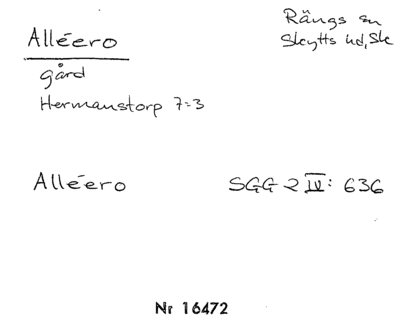 Alléero
Rängs sn
Skytts hd, Sk
gård
Hermanstorp 7:3
Alléero
SGG 2 IV: 636
Nr 16472